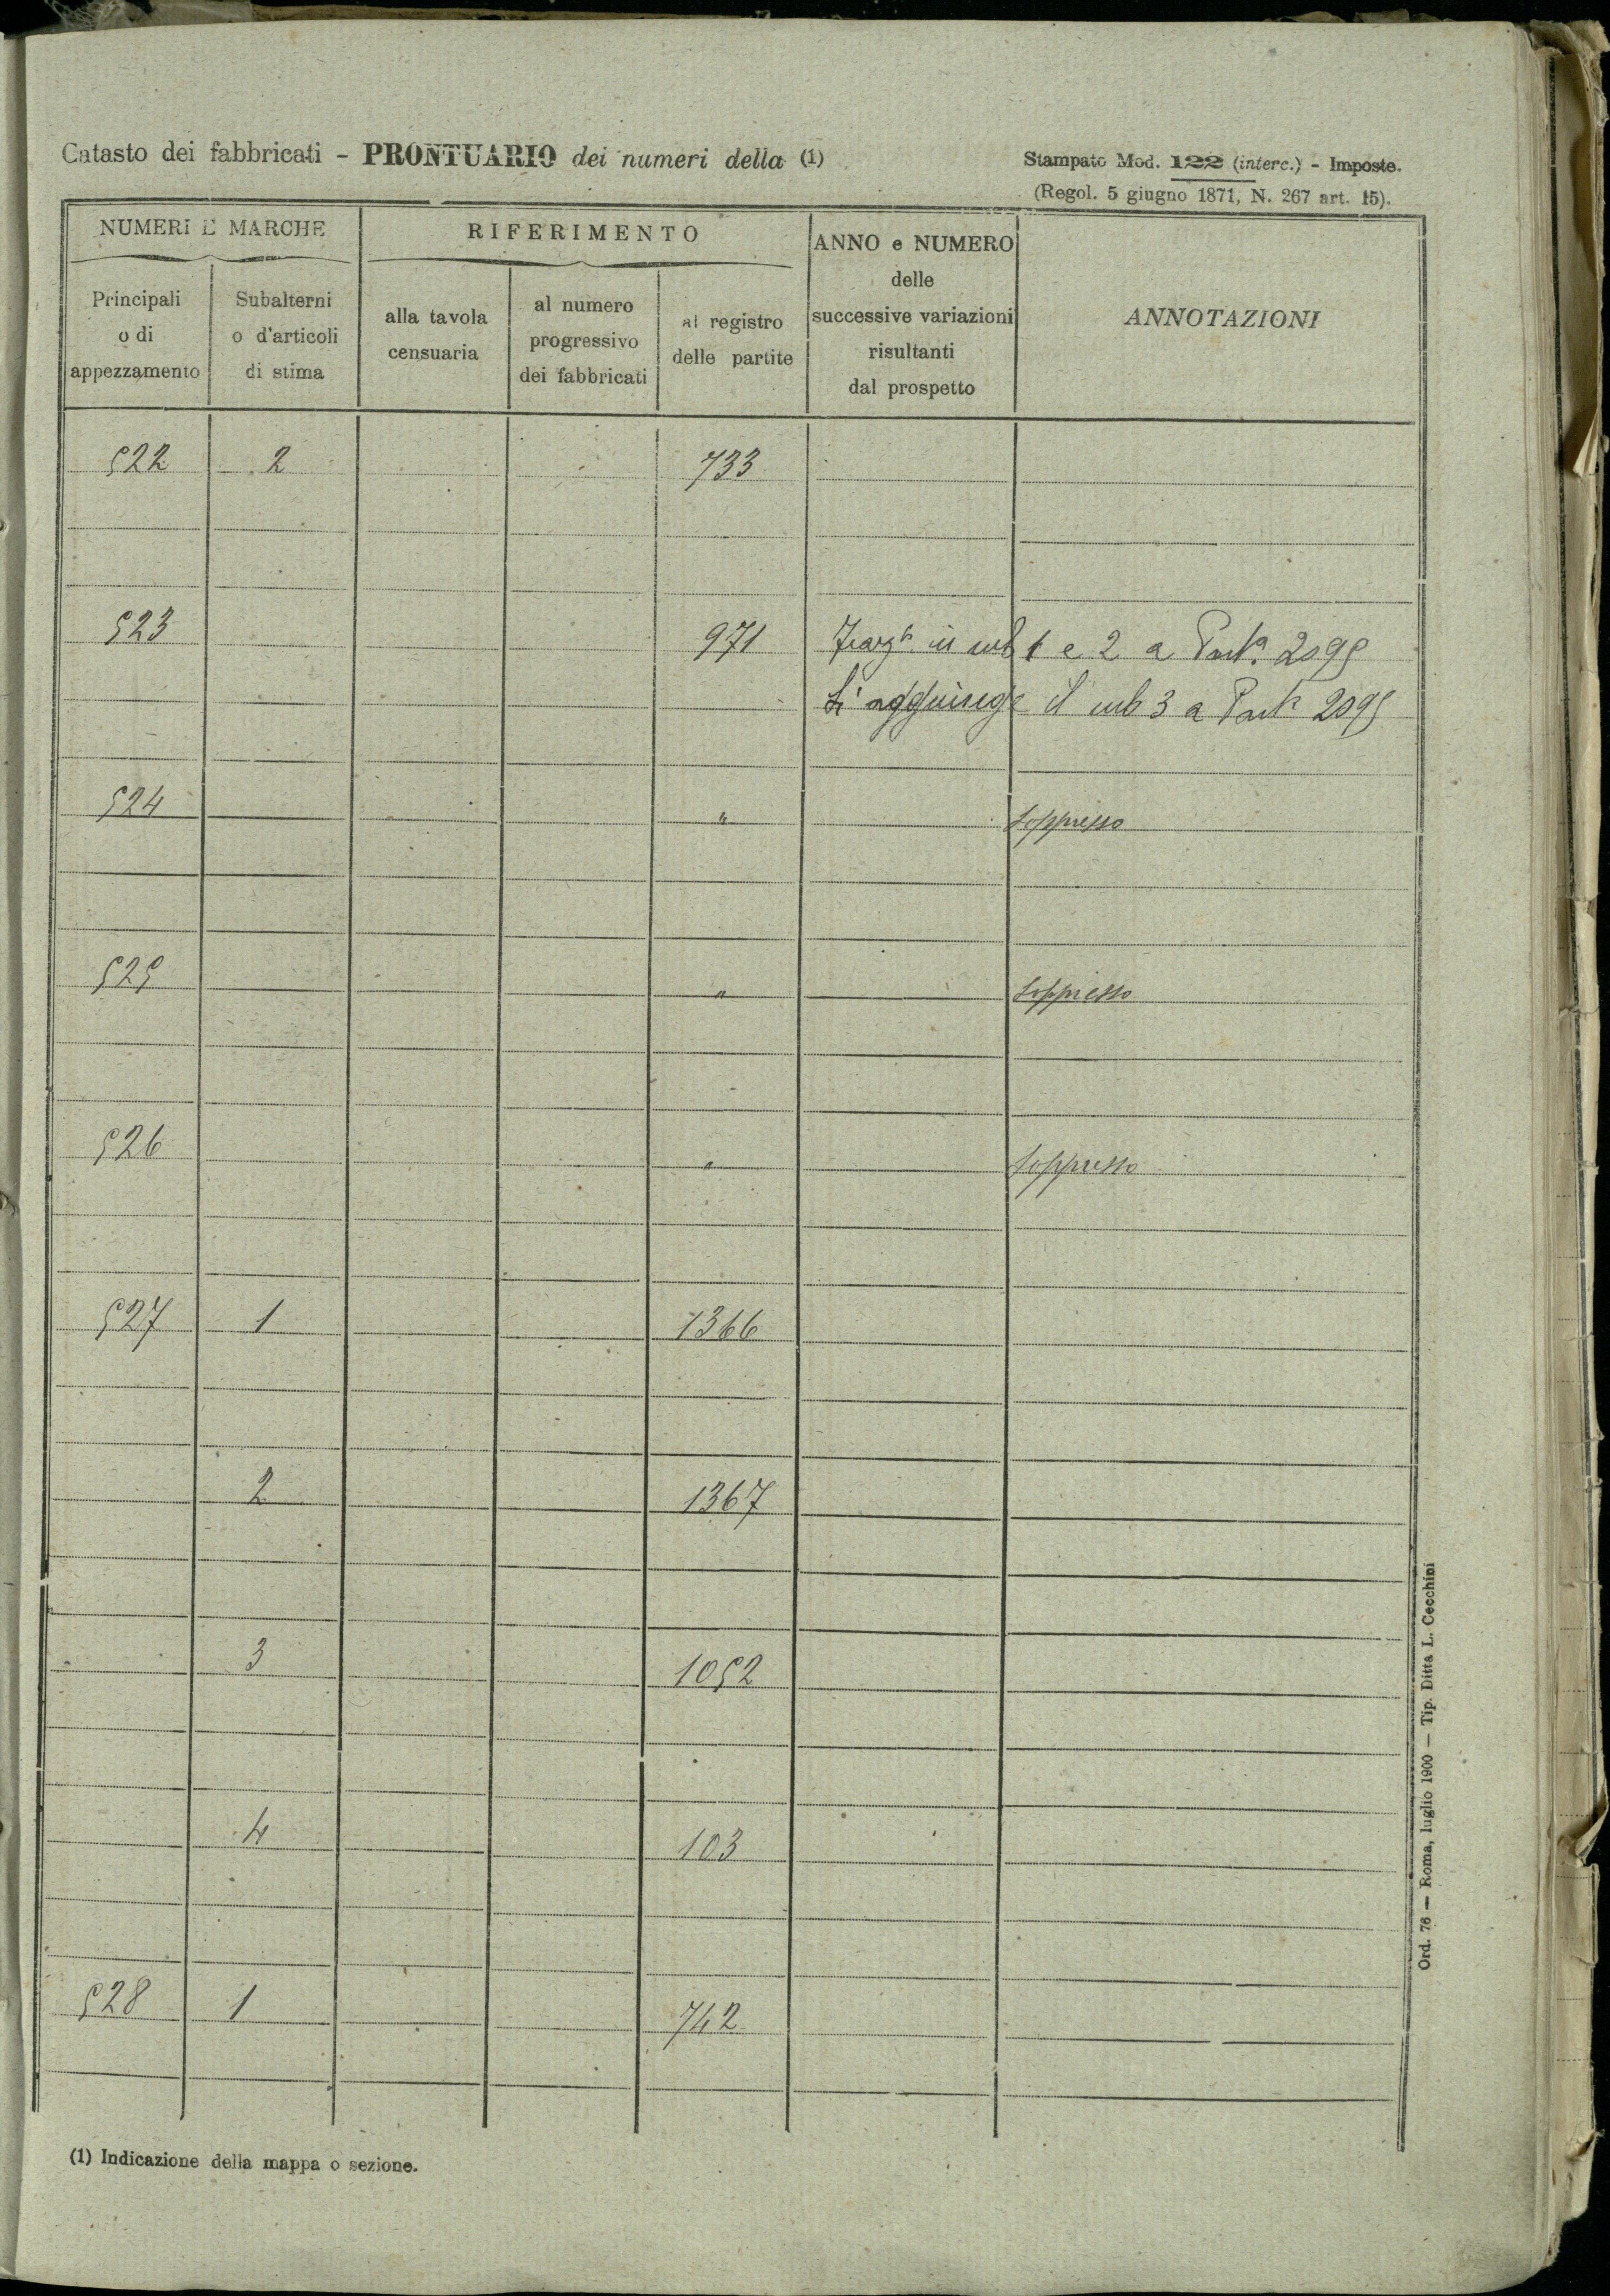 Catasto dei fabbricati - PRONTUARIO dei numeri della (1)
Stampato Mod. 122 (interc.) - Imposte.
(Regol. 5 giugno 1871, N. 267 art. 15).
NUMERI E MARCHE
RIFERIMENTO
ANNO e NUMERO
delle
successive variazioni
risultanti
dal prospetto
ANNOTAZIONI
Principali
o di
appezzamento
Subalterni
o d'articoli
di stima
alla tavola
censuaria
al numero
progressivo
dei fabbricati
al registro
delle partite
522 2 733
523 971 in sub 1 e 2 a Parta 2095
Si aggiunge il sub 3 a Parta 2095
524 " Soppresso
525 " Soppresso
526 " Soppresso
527 1 1366
2 1367
3 1052
4 103
528 1 742
(1) Indicazione della mappa o sezione.
Ord. 76 — Roma, luglio 1900 — Tip. Ditta L. Cecchini